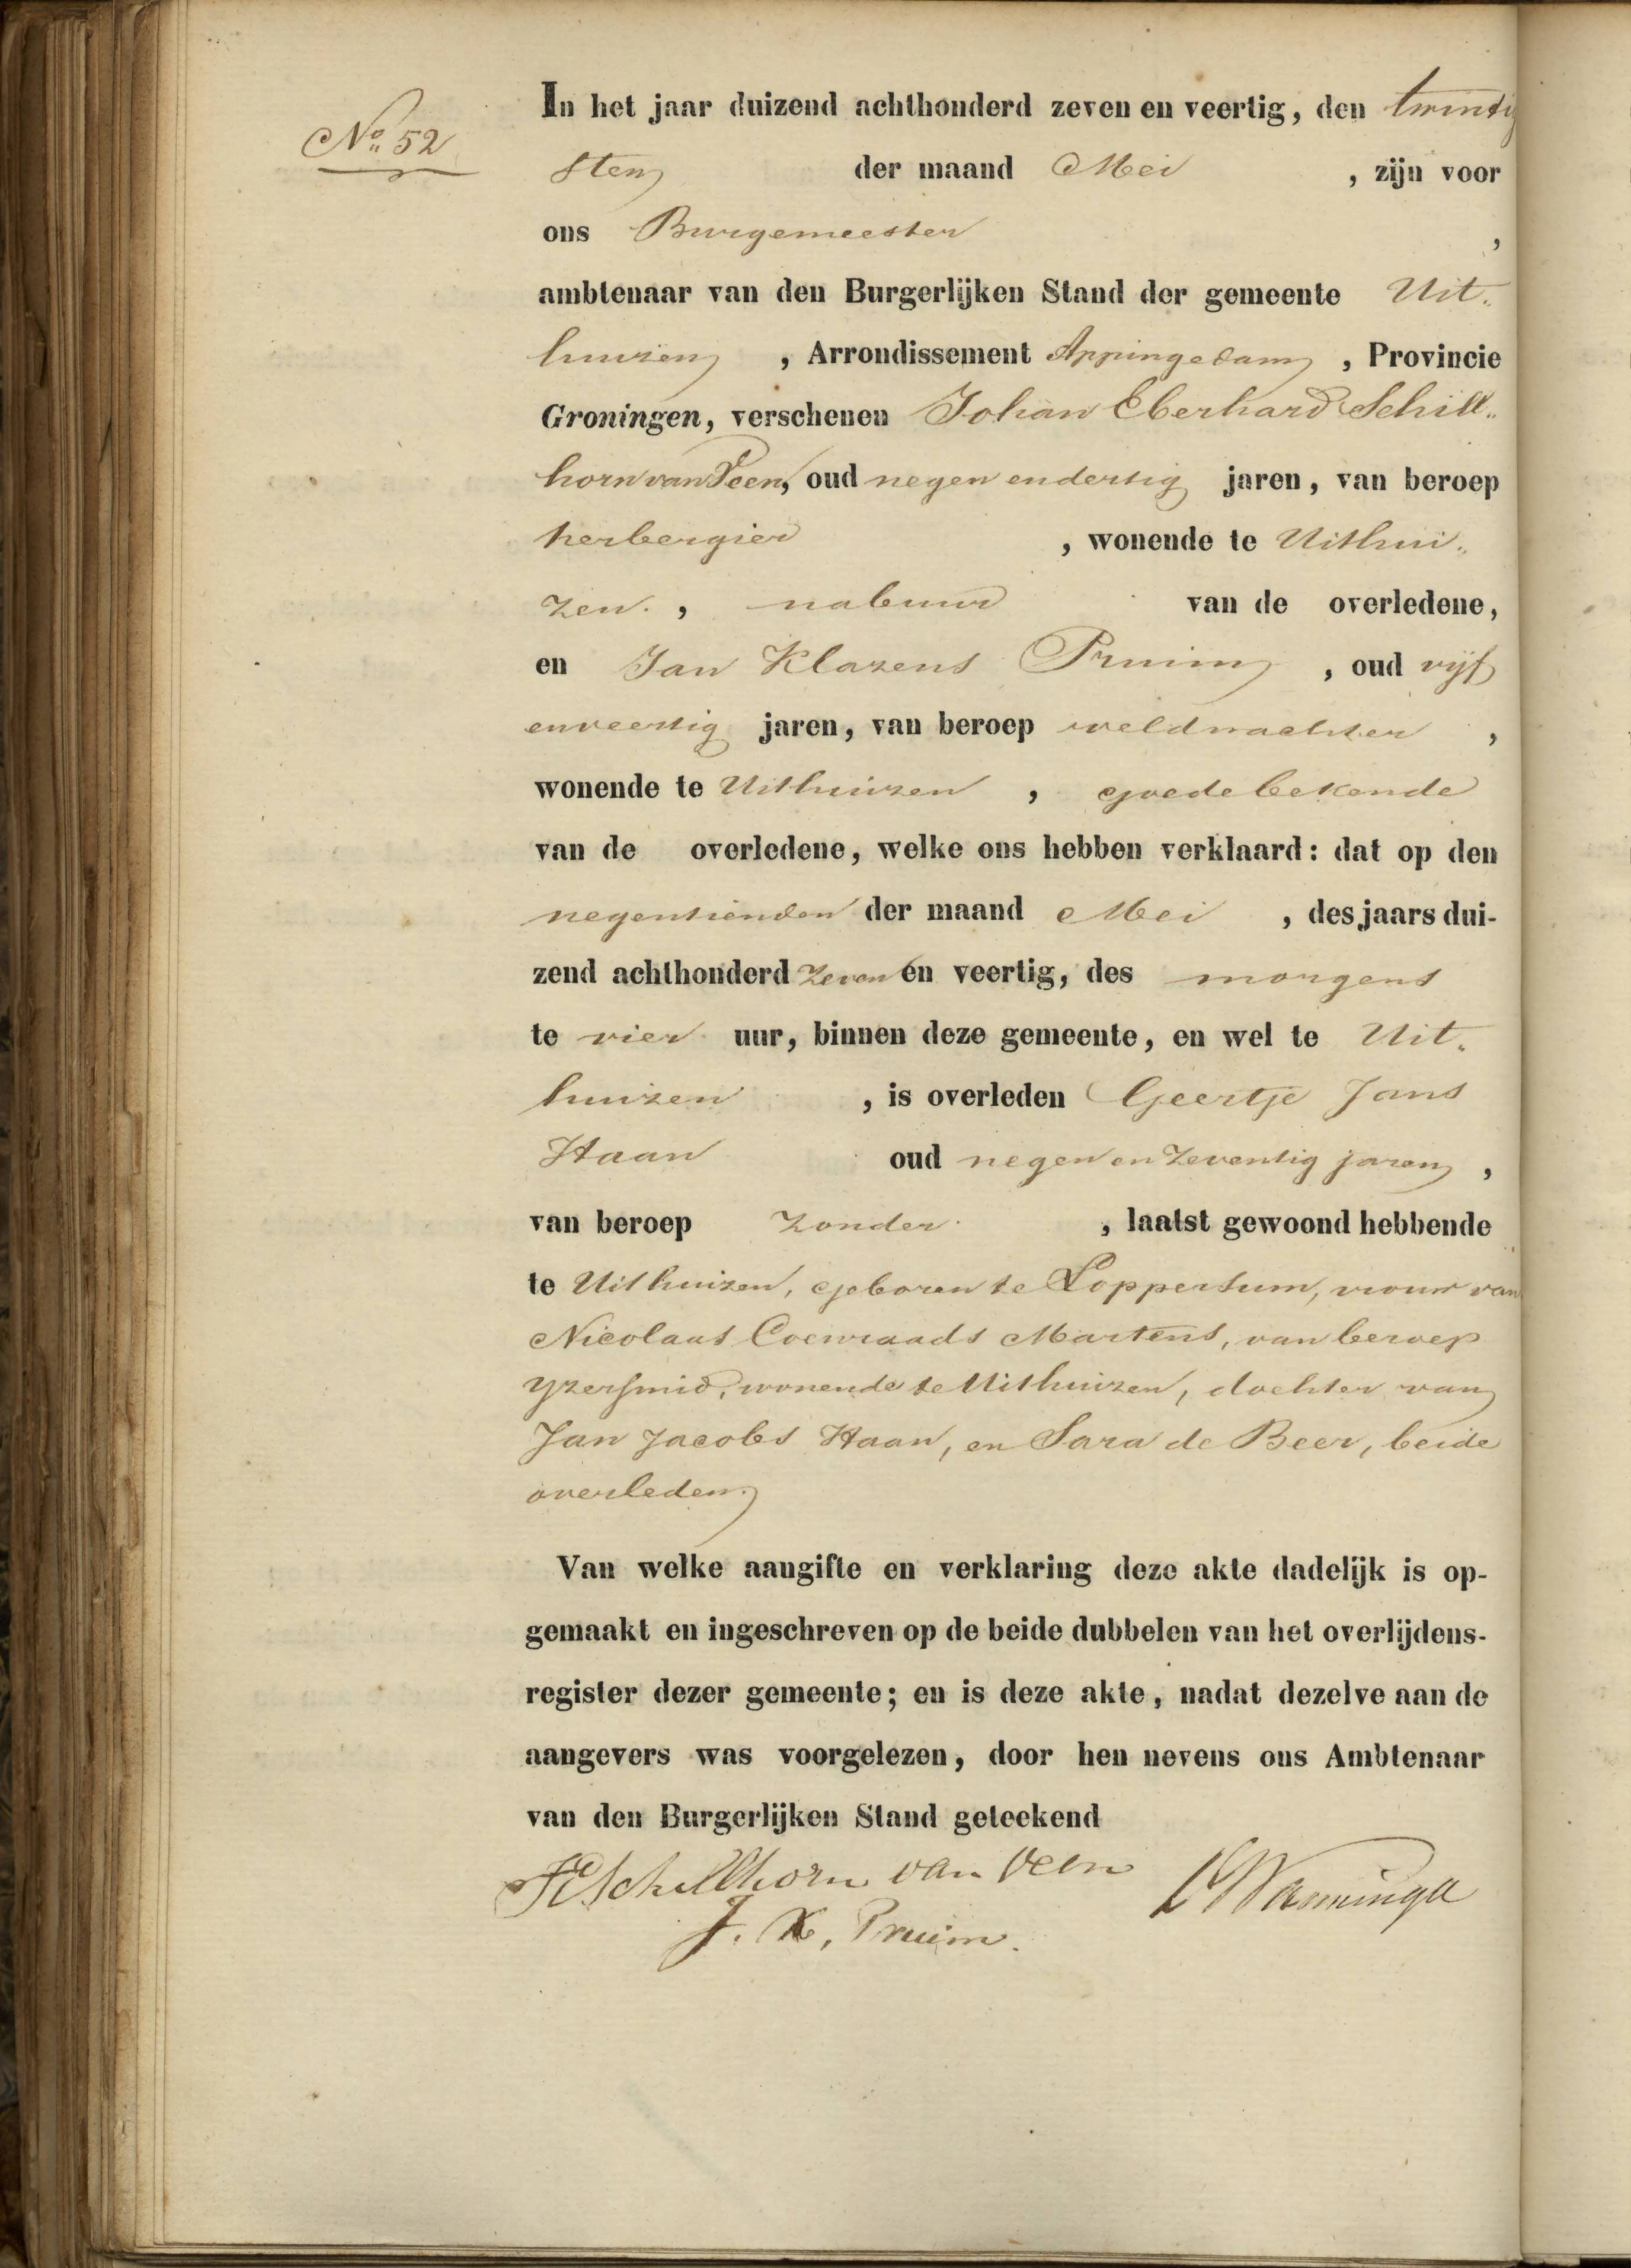 No. 52
In het jaar duizend achthonderd zeven en veertig, den twintig
sten der maand Mei , zijn voor
ons Burgemeester ,
ambtenaar van den Burgerlijken Stand der gemeente Uit„
huizen , Arrondissement Appingedam , Provincie
Groningen, verschenen Johan Eberhard Schill„
horn van Veen, oud negen en dertig jaren, van beroep
herbergier , wonende te Uithui„
zen. , nabuur van de overledene,
en Jan Klazens Pruim , oud vijf
en veertig jaren, van beroep veldwachter ,
wonende te Uithuizen , goede bekende
van de overledene, welke ons hebben verklaard: dat op den
negentienden der maand Mei , des jaars dui-
zend achthonderd zeven en veertig, des morgens
te vier uur, binnen deze gemeente, en wel te Uit„
huizen , is overleden Geertje Jans
Haan oud negen en zeventig jaren ,
van beroep zonder , laatst gewoond hebbende
te Uithuizen, geboren te Loppersum, vrouw van
Nicolaas Coenraads Martens, van beroep
yzersmid, wonende te Uithuizen, dochter van
Jan Jacobs Haan, en Sara de Beer, beide
overleden.
Van welke aangifte en verklaring deze akte dadelijk is op-
gemaakt en ingeschreven op de beide dubbelen van het overlijdens-
register dezer gemeente; en is deze akte, nadat dezelve aan de
aangevers was voorgelezen, door hen nevens ons Ambtenaar
van den Burgerlijken Stand geteekend
JE Schillhorn van Veen
J. K. Pruim.